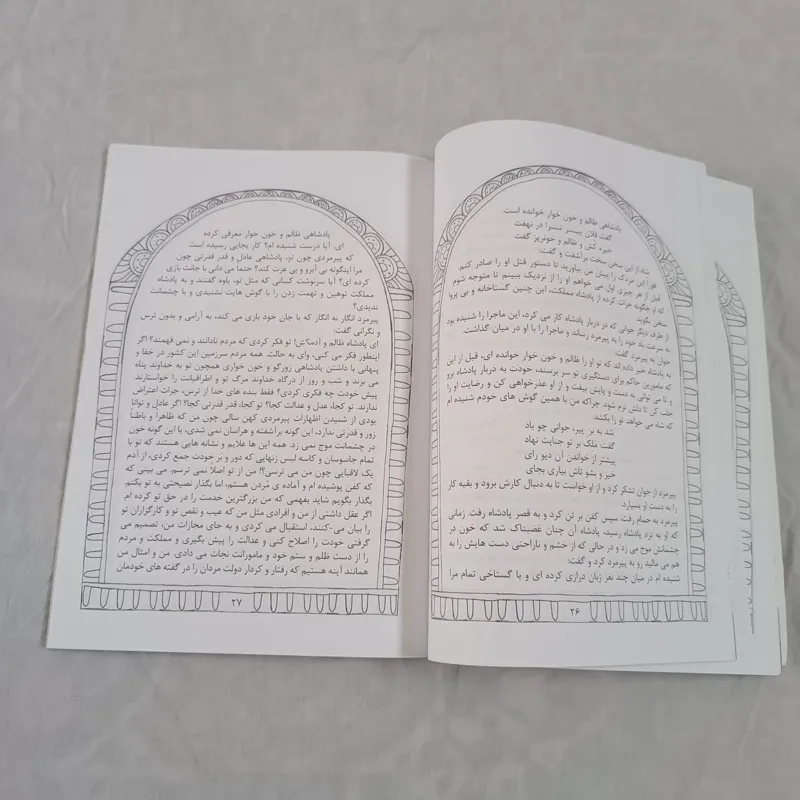 پادشاهی ظالم و خون خوار خوانده است.
گفت فلان پیسر تسرا در نهفت
خیره کُش و ظالم و خونریز گفت
شاه از این سخن سخت برآشفت و گفت:
فورا این مردک را پیش من بیاورید تا دستور قتل او را صادر کنم.
قبل از هر چیزی اول می خواهم او را از نزدیک ببینم تا متوجه شوم
که او چگونه جرات کرده از پادشاه مملکت، این چنین گستاخانه و بی پروا
سخن بگوید.
از طرف دیگر جوانی که در دربار پادشاه کار می کرد، این ماجرا را شنیده بود
به سرعت باد خود را به پیرمرد رساند و ماجرا را با او در میان گذاشت.
جوان به پیرمرد گفت:
به پادشاه خبر داده اند که تو او را ظالم و خون خوار خوانده ای، قبل از این
که مامورین حاکم برای دستگیری تو سر برسند، خودت به دربار پادشاه برو
و تا می توانی به دست و پایش بیفت و از او عذرخواهی کن و رضایت او را
جلب کن تا دلش نرم شود. چراکه من با همین گوش های خودم شنیده ام
که شاه می خواهد، تو را بکشد.
شد به بر پیر، جوانی چو باد
گفت مَلک بر تو جنایت نهاد
پیشتر از خواندن آن دیو رای
خیز و بشو تاش بیاری بجای
پیرمرد از جوان تشکر کرد و از او خواست تا به دنبال کارش برود و بقیه کار
را به دست او بسپارد.
پیرمرد به حمام رفت، سپس کفن بر تن کرد و به قصر پادشاه رفت. زمانی
که او به نزد پادشاه رسید، پادشاه آن چنان غضبناک شد که خون در
چشمانش موج می زد و در حالی که از خشم و ناراحتی دست هایش را به
هم می مالید رو به پیرمرد کرد و گفت:
شنیده ام در میان چند نفر زبان درازی کرده ای و با گستاخی تمام مرا
۲۶
پادشاهی ظالم و خون خوار معرفی کرده
ای. آیا درست شنیده ام؟ کار بجایی رسیده است
که پیرمردی چون تو، پادشاهی عادل و قدر قدرتی چون
مرا اینگونه بی آبرو و بی عزت کند؟ حتما می دانی با جانت بازی
کرده ای؟ آیا سرنوشت کسانی که مثل تو، یاوه گفتند و به پادشاه
مملکت توهین و تهمت زدن را با گوش هایت نشنیدی و با چشمانت
ندیدی؟
پیرمرد انگار نه انگار که با جان خود بازی می کند، به آرامی و بدون ترس
و نگرانی گفت:
ای پادشاه ظالم و آدم‌کُش! تو فکر کردی که مردم نادانند و نمی فهمند؟ اگر
اینطور فکر می کنی، وای به حالت. همه مردم سرزمین این کشور در خفا و
پنهانی با داشتن پادشاهی زورگو و خون خواری همچون تو به خداوند پناه
می برند و شب و روز از درگاه خداوند، مرگ تو و اطرافیانت را خواستارند.
پیش خودت چه فکری کردی؟ فقط بنده های خدا از ترس، جرات اعتراض
ندارند. تو کجا، عدل و عدالت کجا؟ تو کجا، قدر قدرتی کجا؟ اگر عادل و توانا
بودی از شنیدن اظهارات پیرمردی کهن سالی چون من که ظاهرا و باطناً
زور و قدرتی ندارد، این گونه برآشفته و هراسان نمی شدی، یا این گونه خون
در چشمانت موج نمی زد. همه این ها علایم و نشانه هایی هستند که تو با
تمام جاسوسان و کاسه لیس زنهایی که دور و بر خودت جمع کردی، از آدم
یک لاقبایی چون من می ترسی؟! من از تو اصلا نمی ترسم. می بینی که
که کفن پوشیده ام و آماده ی مُردن هستم، اما بگذار نصیحتی به تو بکنم.
بگذار بگویم شاید بفهمی که من بزرگترین خدمت را در حق تو کرده ام.
اگر عقل داشتی از من و افرادی مثل من که عیب و نقص تو و کارگزاران تو
را بیان می-کنند، استقبال می کردی و به جای مجازات من، تصمیم می
گرفتی خودت را اصلاح کنی و عدالت را پیش بگیری و مملکت و مردم
را از دست ظلم و ستم خود و مامورانت نجات می دادی. من و امثال من
همانند آینه هستیم که رفتار و کردار دولت مردان را در گفته های خودمان
۲۷